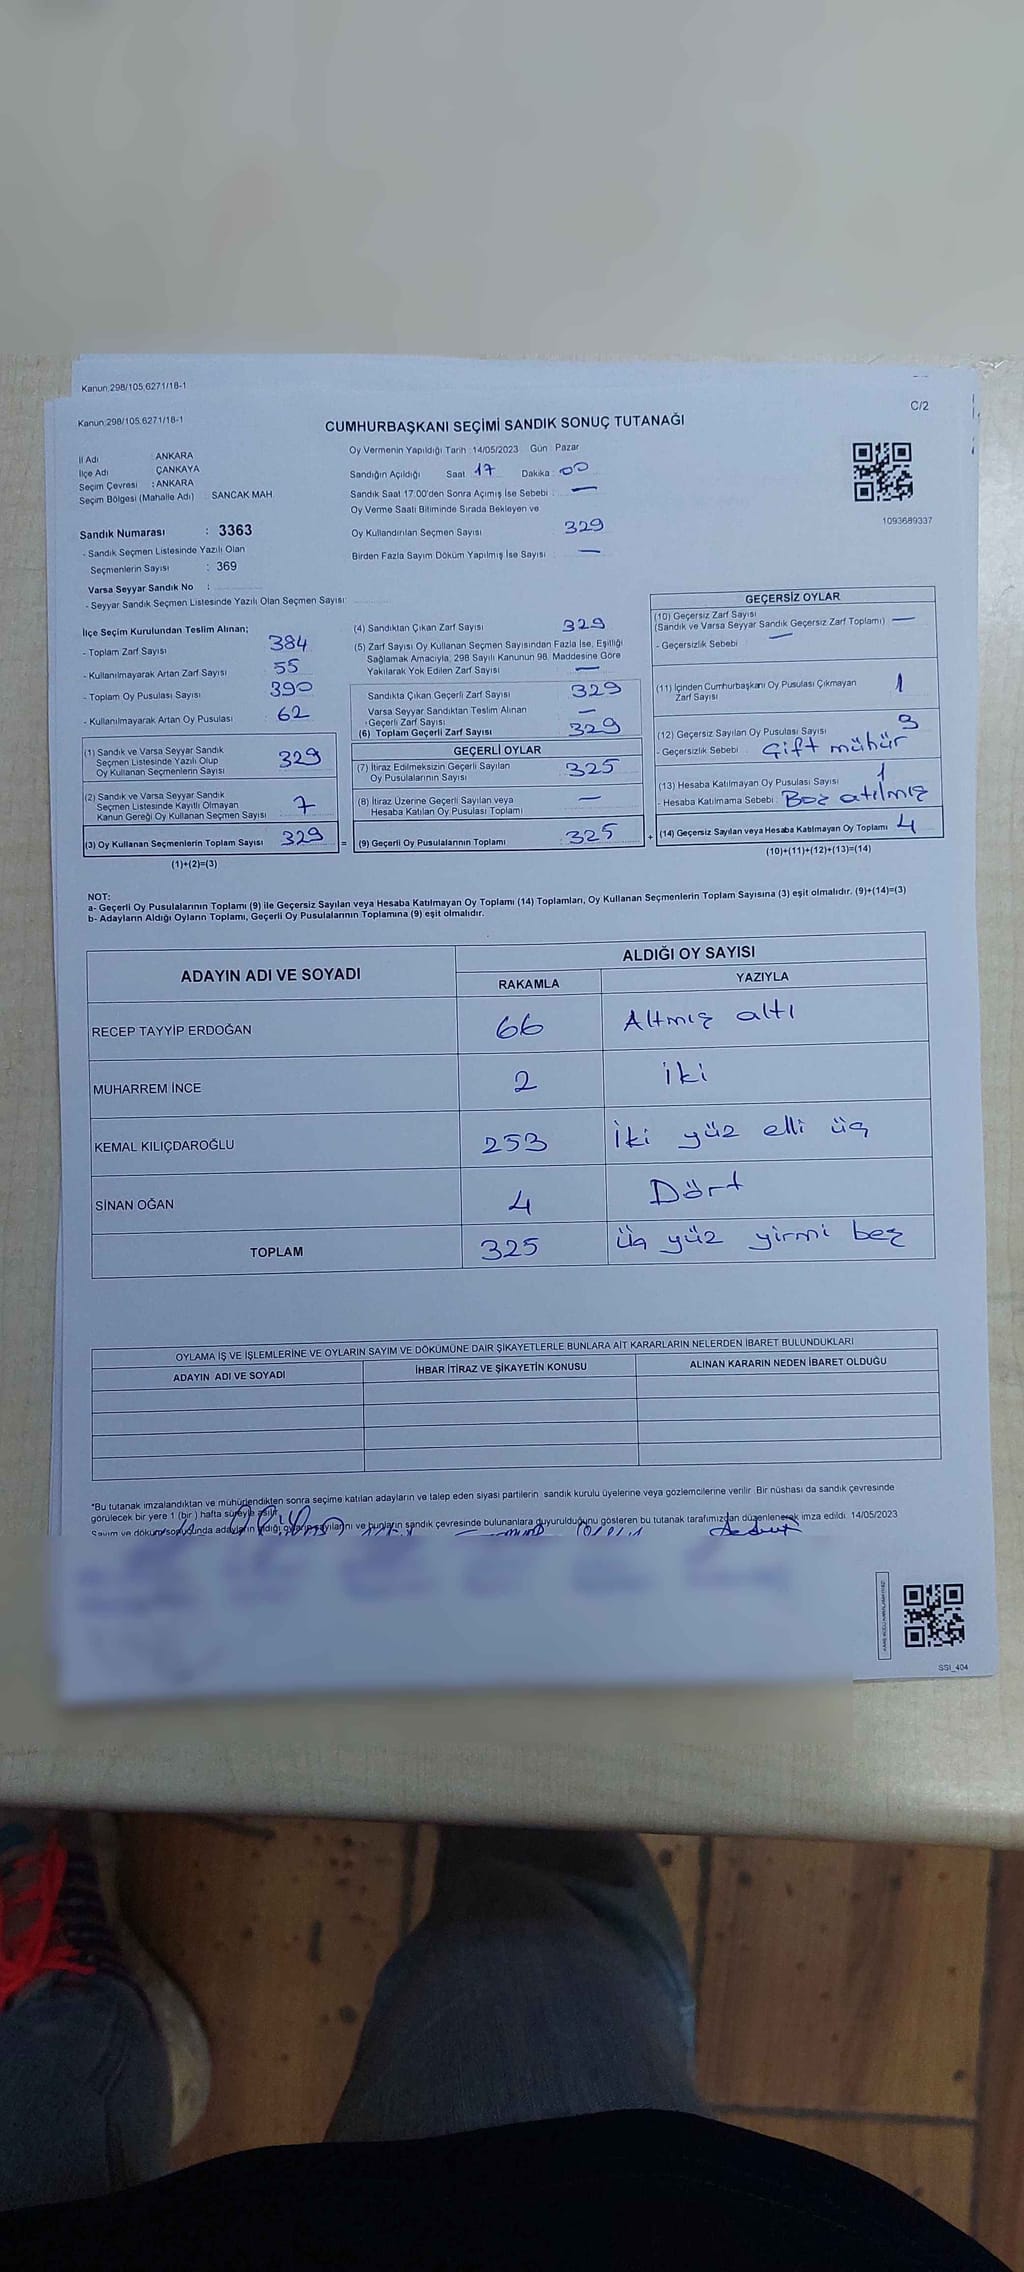 Kanun;298/105,6271/18-1
Kanun;298/105,6271/18-1
C/2
CUMHURBAŞKANI SEÇİMİ SANDIK SONUÇ TUTANAĞI
İl Adı : ANKARA
İlçe Adı : ÇANKAYA
Seçim Çevresi : ANKARA
Seçim Bölgesi (Mahalle Adı) : SANCAK MAH
Sandık Numarası : 3363
- Sandık Seçmen Listesinde Yazılı Olan
Seçmenlerin Sayısı : 369
Varsa Seyyar Sandık No :
- Seyyar Sandık Seçmen Listesinde Yazılı Olan Seçmen Sayısı:
Oy Vermenin Yapıldığı Tarih : 14/05/2023 Gün : Pazar
Sandığın Açıldığı Saat 17 Dakika : 00
Sandık Saat 17:00'den Sonra Açımış İse Sebebi : —
Oy Verme Saati Bitiminde Sırada Bekleyen ve
Oy Kullandırılan Seçmen Sayısı 329
Birden Fazla Sayım Döküm Yapılmış İse Sayısı : —
1093689337
İlçe Seçim Kurulundan Teslim Alınan;
- Toplam Zarf Sayısı : 384
- Kullanılmayarak Artan Zarf Sayısı : 55
- Toplam Oy Pusulası Sayısı : 390
- Kullanılmayarak Artan Oy Pusulası : 62
(1) Sandık ve Varsa Seyyar Sandık
Seçmen Listesinde Yazılı Olup
Oy Kullanan Seçmenlerin Sayısı : 329
(2) Sandık ve Varsa Seyyar Sandık
Seçmen Listesinde Kayıtlı Olmayan
Kanun Gereği Oy Kullanan Seçmen Sayısı : 7
(3) Oy Kullanan Seçmenlerin Toplam Sayısı : 329
(1)+(2)=(3)
(4) Sandıktan Çıkan Zarf Sayısı 329
(5) Zarf Sayısı Oy Kullanan Seçmen Sayısından Fazla İse, Eşitliği
Sağlamak Amacıyla, 298 Sayılı Kanunun 98. Maddesine Göre
Yakılarak Yok Edilen Zarf Sayısı : —
Sandıkta Çıkan Geçerli Zarf Sayısı : 329
Varsa Seyyar Sandıktan Teslim Alınan
Geçerli Zarf Sayısı : —
(6) Toplam Geçerli Zarf Sayısı : 329
GEÇERLİ OYLAR
(7) İtiraz Edilmeksizin Geçerli Sayılan
Oy Pusulalarının Sayısı : 325
(8) İtiraz Üzerine Geçerli Sayılan veya
Hesaba Katılan Oy Pusulası Toplamı : —
= (9) Geçerli Oy Pusulalarının Toplamı : 325
GEÇERSİZ OYLAR
(10) Geçersiz Zarf Sayısı
(Sandık ve Varsa Seyyar Sandık Geçersiz Zarf Toplamı) : —
- Geçersizlik Sebebi : —
(11) İçinden Cumhurbaşkanı Oy Pusulası Çıkmayan
Zarf Sayısı 1
(12) Geçersiz Sayılan Oy Pusulası Sayısı : 3
- Geçersizlik Sebebi : Çift mühür
(13) Hesaba Katılmayan Oy Pusulası Sayısı : 1
- Hesaba Katılmama Sebebi : Boş atılmış
+ (14) Geçersiz Sayılan veya Hesaba Katılmayan Oy Toplamı : 4
(10)+(11)+(12)+(13)=(14)
NOT:
a- Geçerli Oy Pusulalarının Toplamı (9) ile Geçersiz Sayılan veya Hesaba Katılmayan Oy Toplamı (14) Toplamları, Oy Kullanan Seçmenlerin Toplam Sayısına (3) eşit olmalıdır. (9)+(14)=(3)
b- Adayların Aldığı Oyların Toplamı, Geçerli Oy Pusulalarının Toplamına (9) eşit olmalıdır.
ADAYIN ADI VE SOYADI ALDIĞI OY SAYISI
RAKAMLA YAZIYLA
RECEP TAYYİP ERDOĞAN 66 Altmış altı
MUHARREM İNCE 2 iki
KEMAL KILIÇDAROĞLU 253 İki yüz elli üç
SİNAN OĞAN 4 Dört
TOPLAM 325 üç yüz yirmi beş
OYLAMA İŞ VE İŞLEMLERİNE VE OYLARIN SAYIM VE DÖKÜMÜNE DAİR ŞİKAYETLERLE BUNLARA AİT KARARLARIN NELERDEN İBARET BULUNDUKLARI
ADAYIN ADI VE SOYADI İHBAR İTİRAZ VE ŞİKAYETİN KONUSU ALINAN KARARIN NEDEN İBARET OLDUĞU
*Bu tutanak imzalandıktan ve mühürlendikten sonra seçime katılan adayların ve talep eden siyasi partilerin sandık kurulu üyelerine veya gözlemcilerine verilir. Bir nüshası da sandık çevresinde
görülecek bir yere 1 (bir) hafta süreyle asılır.
Sayım ve döküm sonucunda adayların aldığı oyların sayılarını ve bunların sandık çevresinde bulunanlara duyurulduğunu gösteren bu tutanak tarafımızdan düzenlenerek imza edildi. 14/05/2023
SSI_404